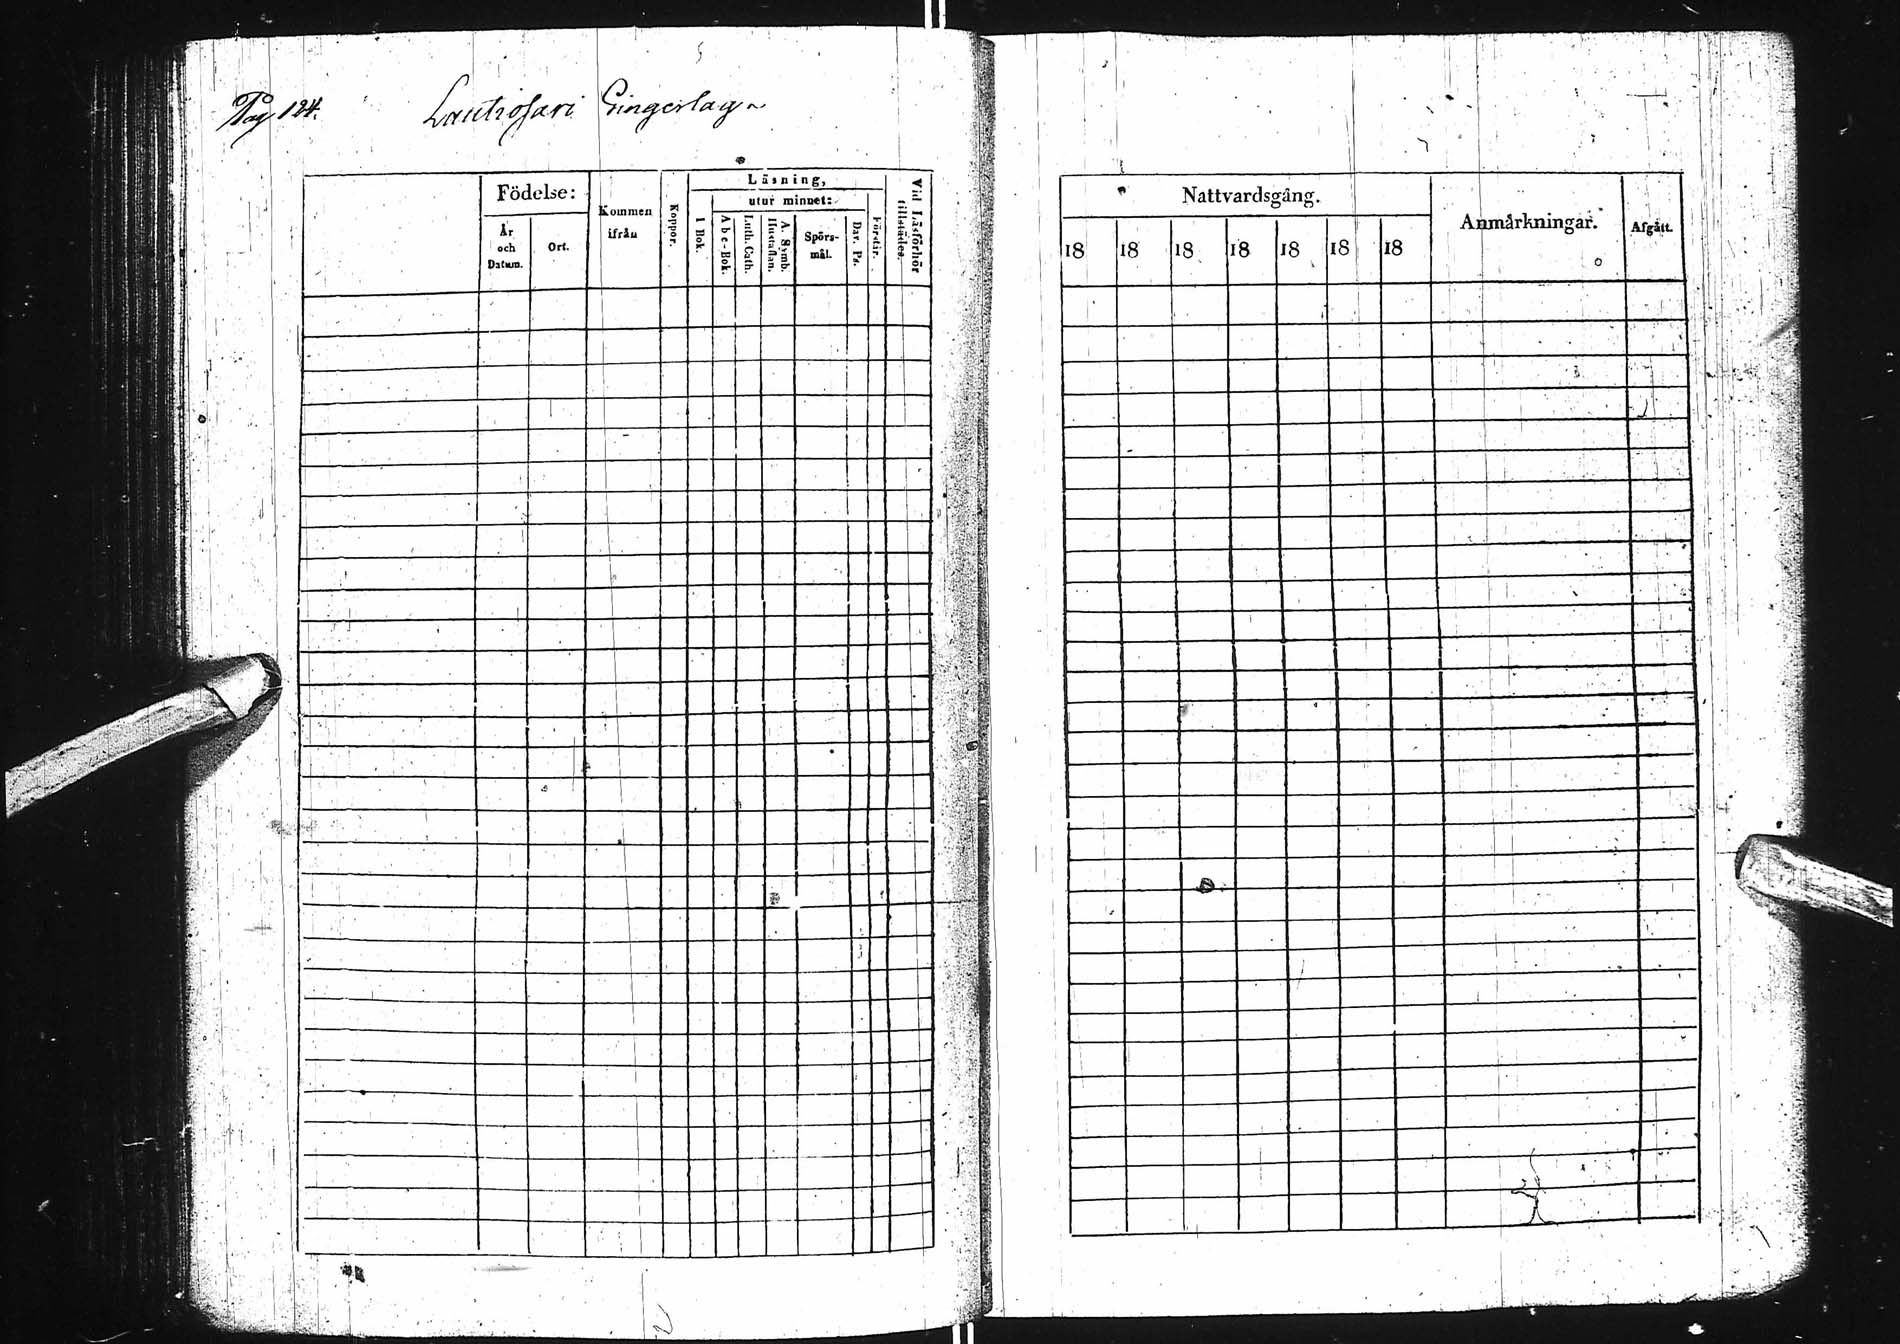 Pag 124. Lautiosari Gingerlag
Födelse:
År och Datum.
Ort.
Kommen ifrån
Koppor.
Läsning,
I Bok.
utur minnet:
A b c-Bok.
Luth. Cath.
A. Symb. Hustaflan.
Spörs-mål.
Dav. Ps.
Förstår.
Vid Läsförhör tillstädes.
Nattvardsgång.
18 18 18 18 18 18 18
Anmärkningar.
Afgått.